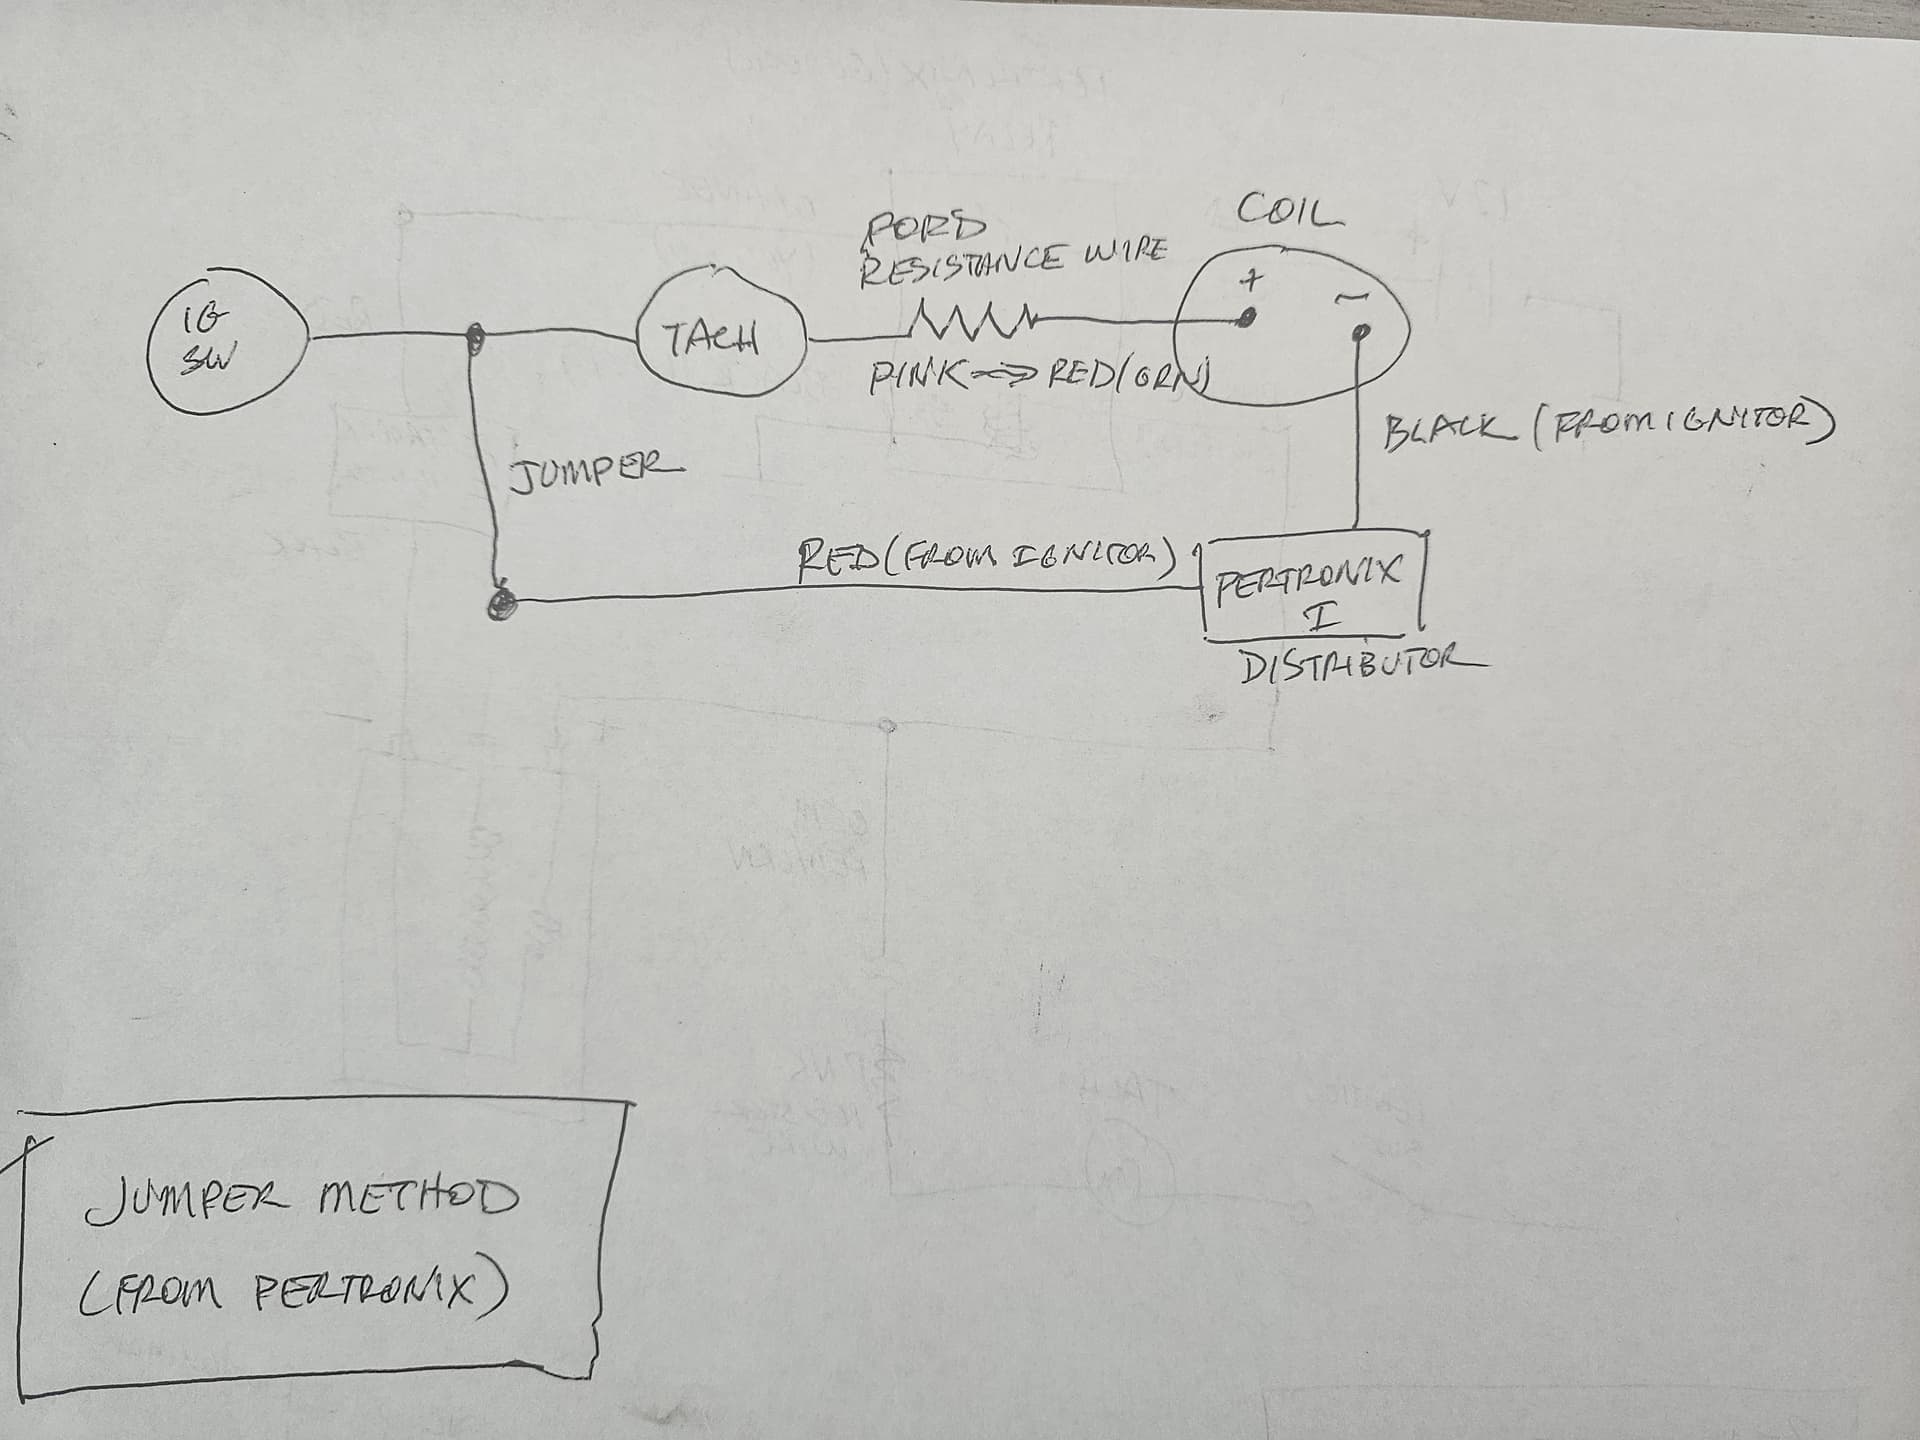 COIL
FORD
RESISTANCE WIRE
IG
SW
TACH
+
-
PINK => RED(GRN)
BLACK (FROM IGNITOR)
JUMPER
RED (FROM IGNITOR)
PERTRONIX
I
DISTRIBUTOR
JUMPER METHOD
(FROM PERTRONIX)